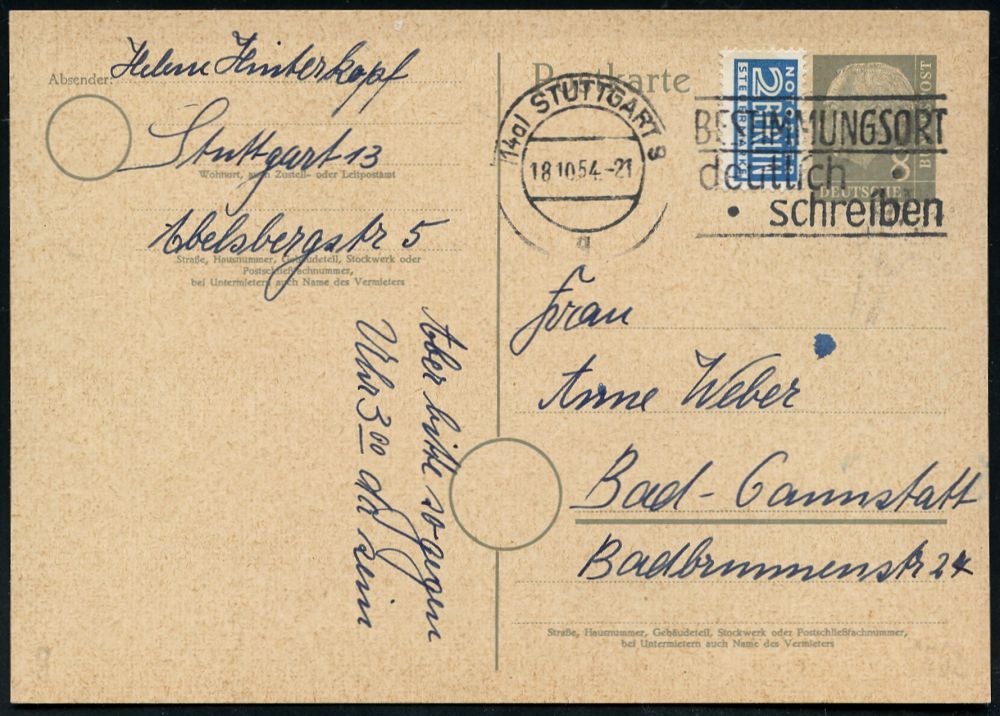 Absender: Helene Hinterkopf
Stuttgart 13
Wohnort, auch Zustell- oder Leitpostamt
Abelsbergstr 5
Straße, Hausnummer, Gebäudeteil, Stockwerk oder
Postschließfachnummer,
bei Untermietern auch Name des Vermieters
Aber bitte so gegen
Uhr 3 00 da sein
Postkarte
(14a) STUTTGART 9
18.10.54.-21
a
NOTOPFER
2 BERLIN
STEUERMARKE
8
DEUTSCHE
BUNDESPOST
BESTIMMUNGSORT
deutlich
schreiben
Frau
Anne Weber
Bad-Cannstatt
Badbrunnenstr 24
Straße, Hausnummer, Gebäudeteil, Stockwerk oder Postschließfachnummer,
bei Untermietern auch Name des Vermieters